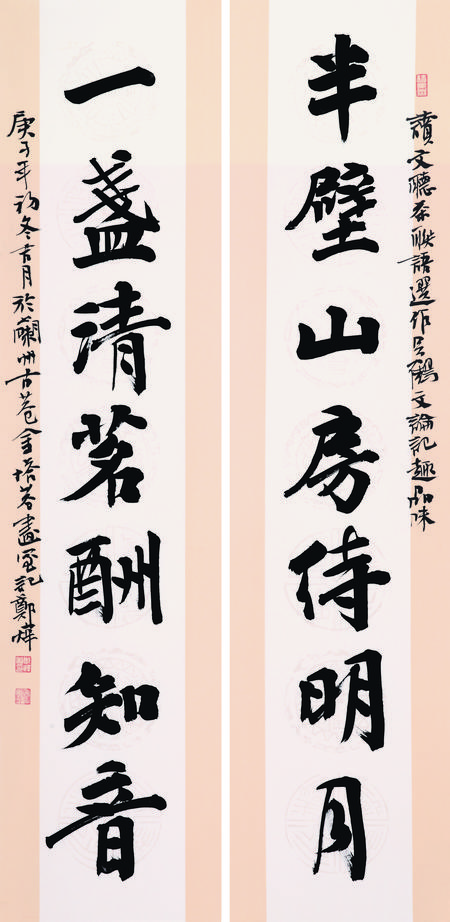 讀文聽茶聯語選作
文論記趣品味
半壁山房待明月
一盞清茗酬知音
庚子年初冬吉月於蘭州古巷金培茗畫室記鄭燁